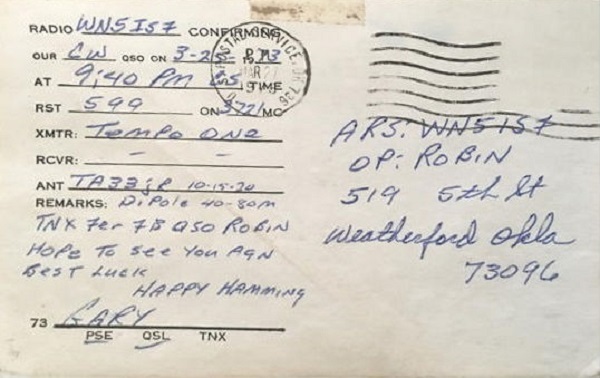 RADIO WN5IS7 CONFIRMING
OUR CW QSO ON 3-2 73
AT 9:40 PM TIME
RST 599 ON 3721 MC
XMTR: Tempo One
RCVR: — —
ANT TA33jR 10-15-20
REMARKS: DiPole 40-80m
TNX Fer FB QSO ROBIN
HOPE TO See You AGN
Best Luck
HAPPY HAMMING
73 GARY
PSE QSL TNX
POSTAL SERVICE
PM
MAR 27
ARS: WN5IS7
OP: ROBIN
519 5th St
Weatherford Okla
73096